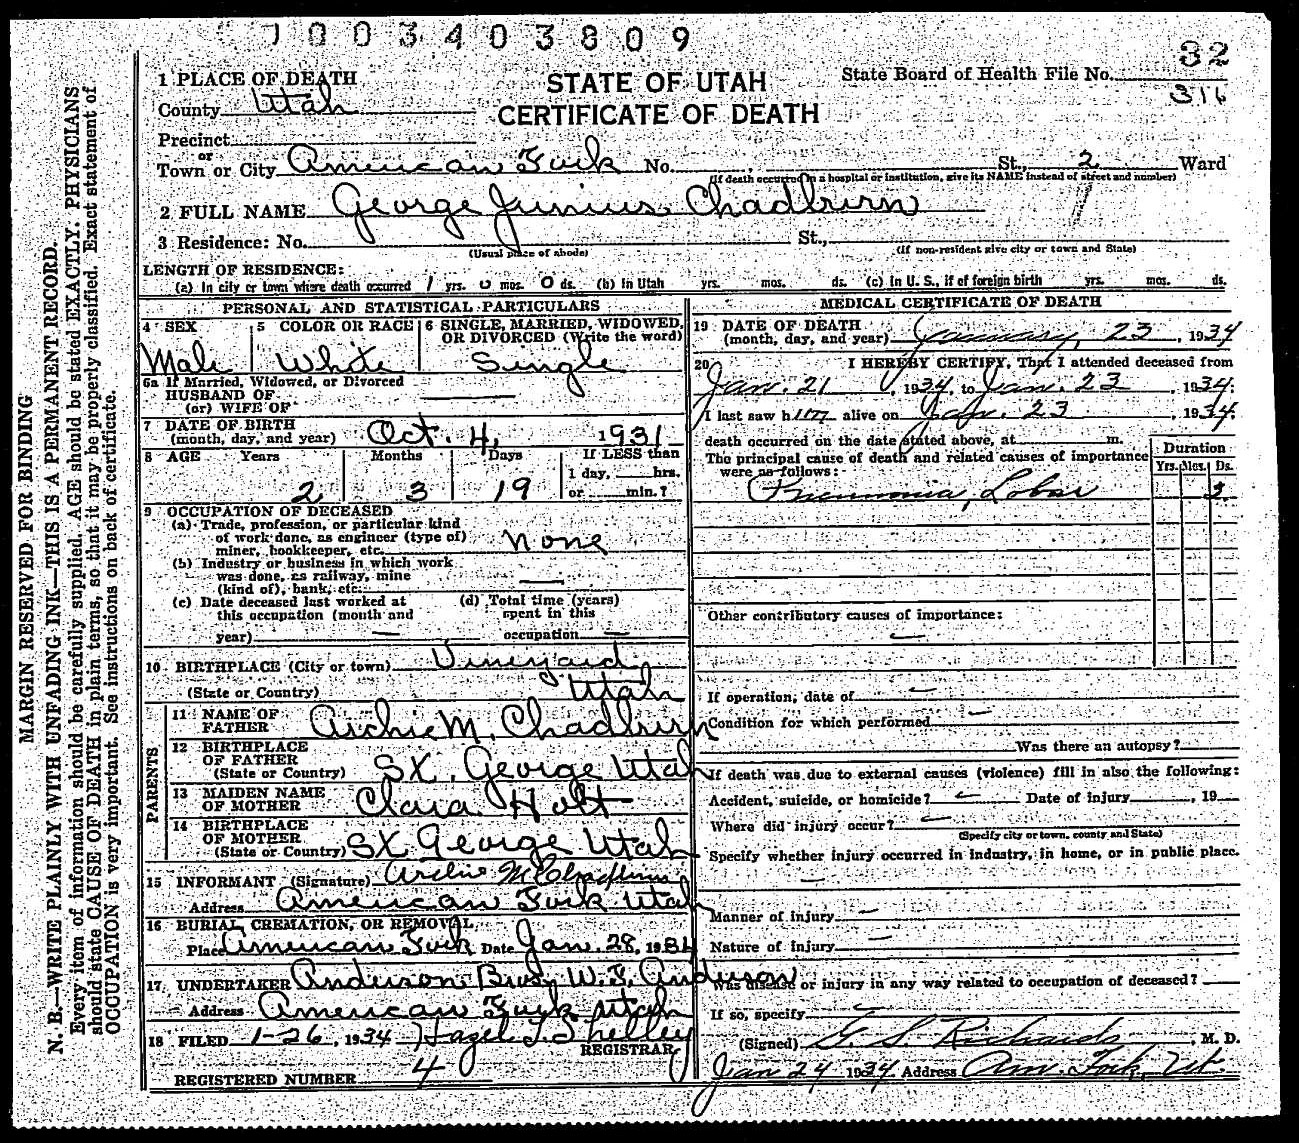 1003403809
32
1 PLACE OF DEATH
STATE OF UTAH
State Board of Health File No.
County Utah
316
CERTIFICATE OF DEATH
Precinct
or
Town or City American Fork No. St., 2 Ward
(If death occurred in a hospital or institution, give its NAME instead of street and number)
2 FULL NAME George Junius Chadburn
3 Residence: No. St.,
(Usual place of abode) (If non-resident give city or town and State)
LENGTH OF RESIDENCE:
(a) In city or town where death occurred 1 yrs. 0 mos. 0 ds. (b) In Utah yrs. mos. ds. (c) In U. S., if of foreign birth yrs. mos. ds.
PERSONAL AND STATISTICAL PARTICULARS
4 SEX 5 COLOR OR RACE 6 SINGLE, MARRIED, WIDOWED, OR DIVORCED (Write the word)
Male White Single
6a If Married, Widowed, or Divorced
HUSBAND OF
(or) WIFE OF
7 DATE OF BIRTH
(month, day, and year) Oct. 4, 1931
8 AGE Years Months Days If LESS than
1 day, hrs.
or min.?
2 3 19
9 OCCUPATION OF DECEASED
(a) Trade, profession, or particular kind
of work done, as engineer (type of)
miner, bookkeeper, etc. none
(b) Industry or business in which work
was done, as railway, mine
(kind of), bank, etc.
(c) Date deceased last worked at
this occupation (month and
year)
(d) Total time (years)
spent in this
occupation
10 BIRTHPLACE (City or town) Vineyard
(State or Country) Utah
PARENTS
11 NAME OF
FATHER Archie M. Chadburn
12 BIRTHPLACE
OF FATHER
(State or Country) St. George Utah
13 MAIDEN NAME
OF MOTHER Clara Holt
14 BIRTHPLACE
OF MOTHER
(State or Country) St George Utah
15 INFORMANT (Signature) Archie M Chadburn
Address American Fork Utah
16 BURIAL, CREMATION, OR REMOVAL
Place American Fork Date Jan. 28, 1934
17 UNDERTAKER Anderson Bros. W. F. Anderson
Address American Fork Utah
18 FILED 1-26, 1934 Hazel T. Shelley
REGISTRAR
REGISTERED NUMBER 4
MEDICAL CERTIFICATE OF DEATH
19 DATE OF DEATH
(month, day, and year) January, 23, 1934
20 I HEREBY CERTIFY, That I attended deceased from
Jan. 21, 1934, to Jan. 23, 1934.
I last saw him alive on Jan. 23, 1934.
death occurred on the date stated above, at m.
The principal cause of death and related causes of importance
were as follows:
Duration
Yrs. Mos. Ds.
Pneumonia, Lobar 3
Other contributory causes of importance:
If operation, date of
Condition for which performed
Was there an autopsy?
If death was due to external causes (violence) fill in also the following:
Accident, suicide, or homicide? Date of injury, 19
Where did injury occur?
(Specify city or town, county and State)
Specify whether injury occurred in industry, in home, or in public place.
Manner of injury
Nature of injury
Was disease or injury in any way related to occupation of deceased?
If so, specify
(Signed) G. S. Richards, M. D.
Jan 24 1934 Address Am. Fork, Ut.
MARGIN RESERVED FOR BINDING
N. B.—WRITE PLAINLY WITH UNFADING INK—THIS IS A PERMANENT RECORD.
Every item of information should be carefully supplied. AGE should be stated EXACTLY. PHYSICIANS
should state CAUSE OF DEATH in plain terms, so that it may be properly classified. Exact statement of
OCCUPATION is very important. See instructions on back of certificate.